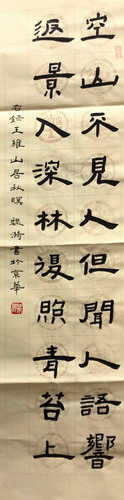 空山不見人但聞人語響
返景入深林復照青苔上
右錄王維山居秋暝 巍漪書於京華